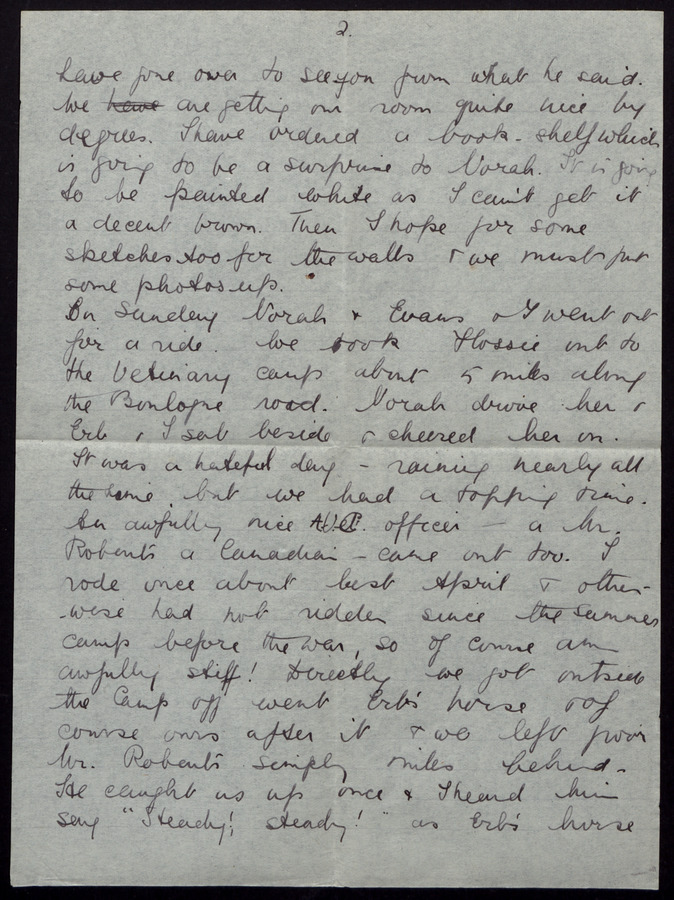 2.
have gone over to see you from what he said.
We have are getting our room quite nice by
degrees. I have ordered a book-shelf which
is going to be a surprise to Norah. It is going
to be painted white as I can't get it
a decent brown. Then I hope for some
sketches too for the walls & we must put
some photos up.
On Sunday Norah & Evans & I went out
for a ride. We took Flossie out to
the Vetinary camp about 5 miles along
the Boulogne road. Norah drove her &
Erb & I sat beside & cheered her on.
It was a hateful day - raining nearly all
the time, but we had a topping time.
An awfully nice officer - a Mr.
Roberts a Canadian - came out too. I
rode once about last April & other-
-wise had not ridden since the summer
camp before the war, so of course am
awfully stiff! Directly we got outside
the Camp off went Erb's horse & of
course ours after it & we left poor
Mr. Roberts simply miles behind.
He caught us up once & I heard him
say "Steady! steady!" as Erb's horse